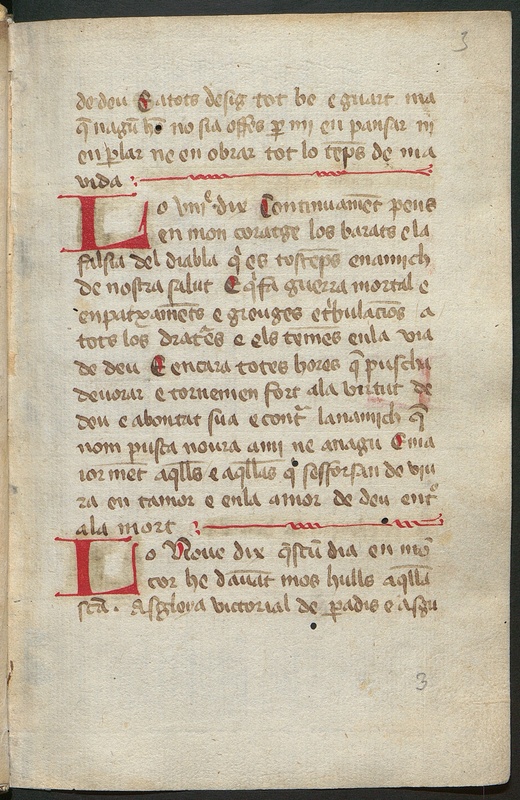 3
de deu E atots desig tot be e guart ma
q̄ nagū hō no sia offes ꝑ mi en pansar ni
en ꝑlar ne en obrar tot lo tēps de ma
vida
Lo viiiᵉ dix Continuamēt pens
en mon coratge los barats e la
falsia del diabla q̄ es tostēps enamich
de nostra salut E q̄ fa guerra mortal e
enpatxamēts e greuges e tbulacions a
tots los dratᵉs e els temēs en la via
de deu E encara totes hores q̄ puscha
devorar e tornemen fort ala virtut de
deu e abontat sua e contᵃ lanamich q̄
nom pusca noura ami ne anagū E ma
ior mēt aq̄lls e aq̄llas q̄ sesforsan de viu
ra en tamor e en la amor de deu entᵒ
ala mort
Lo Nove dix q̄scū dia en mō
cor he davāt mos hulls aq̄lla
scā . Asglera victorial de ꝑadis e asgu
3